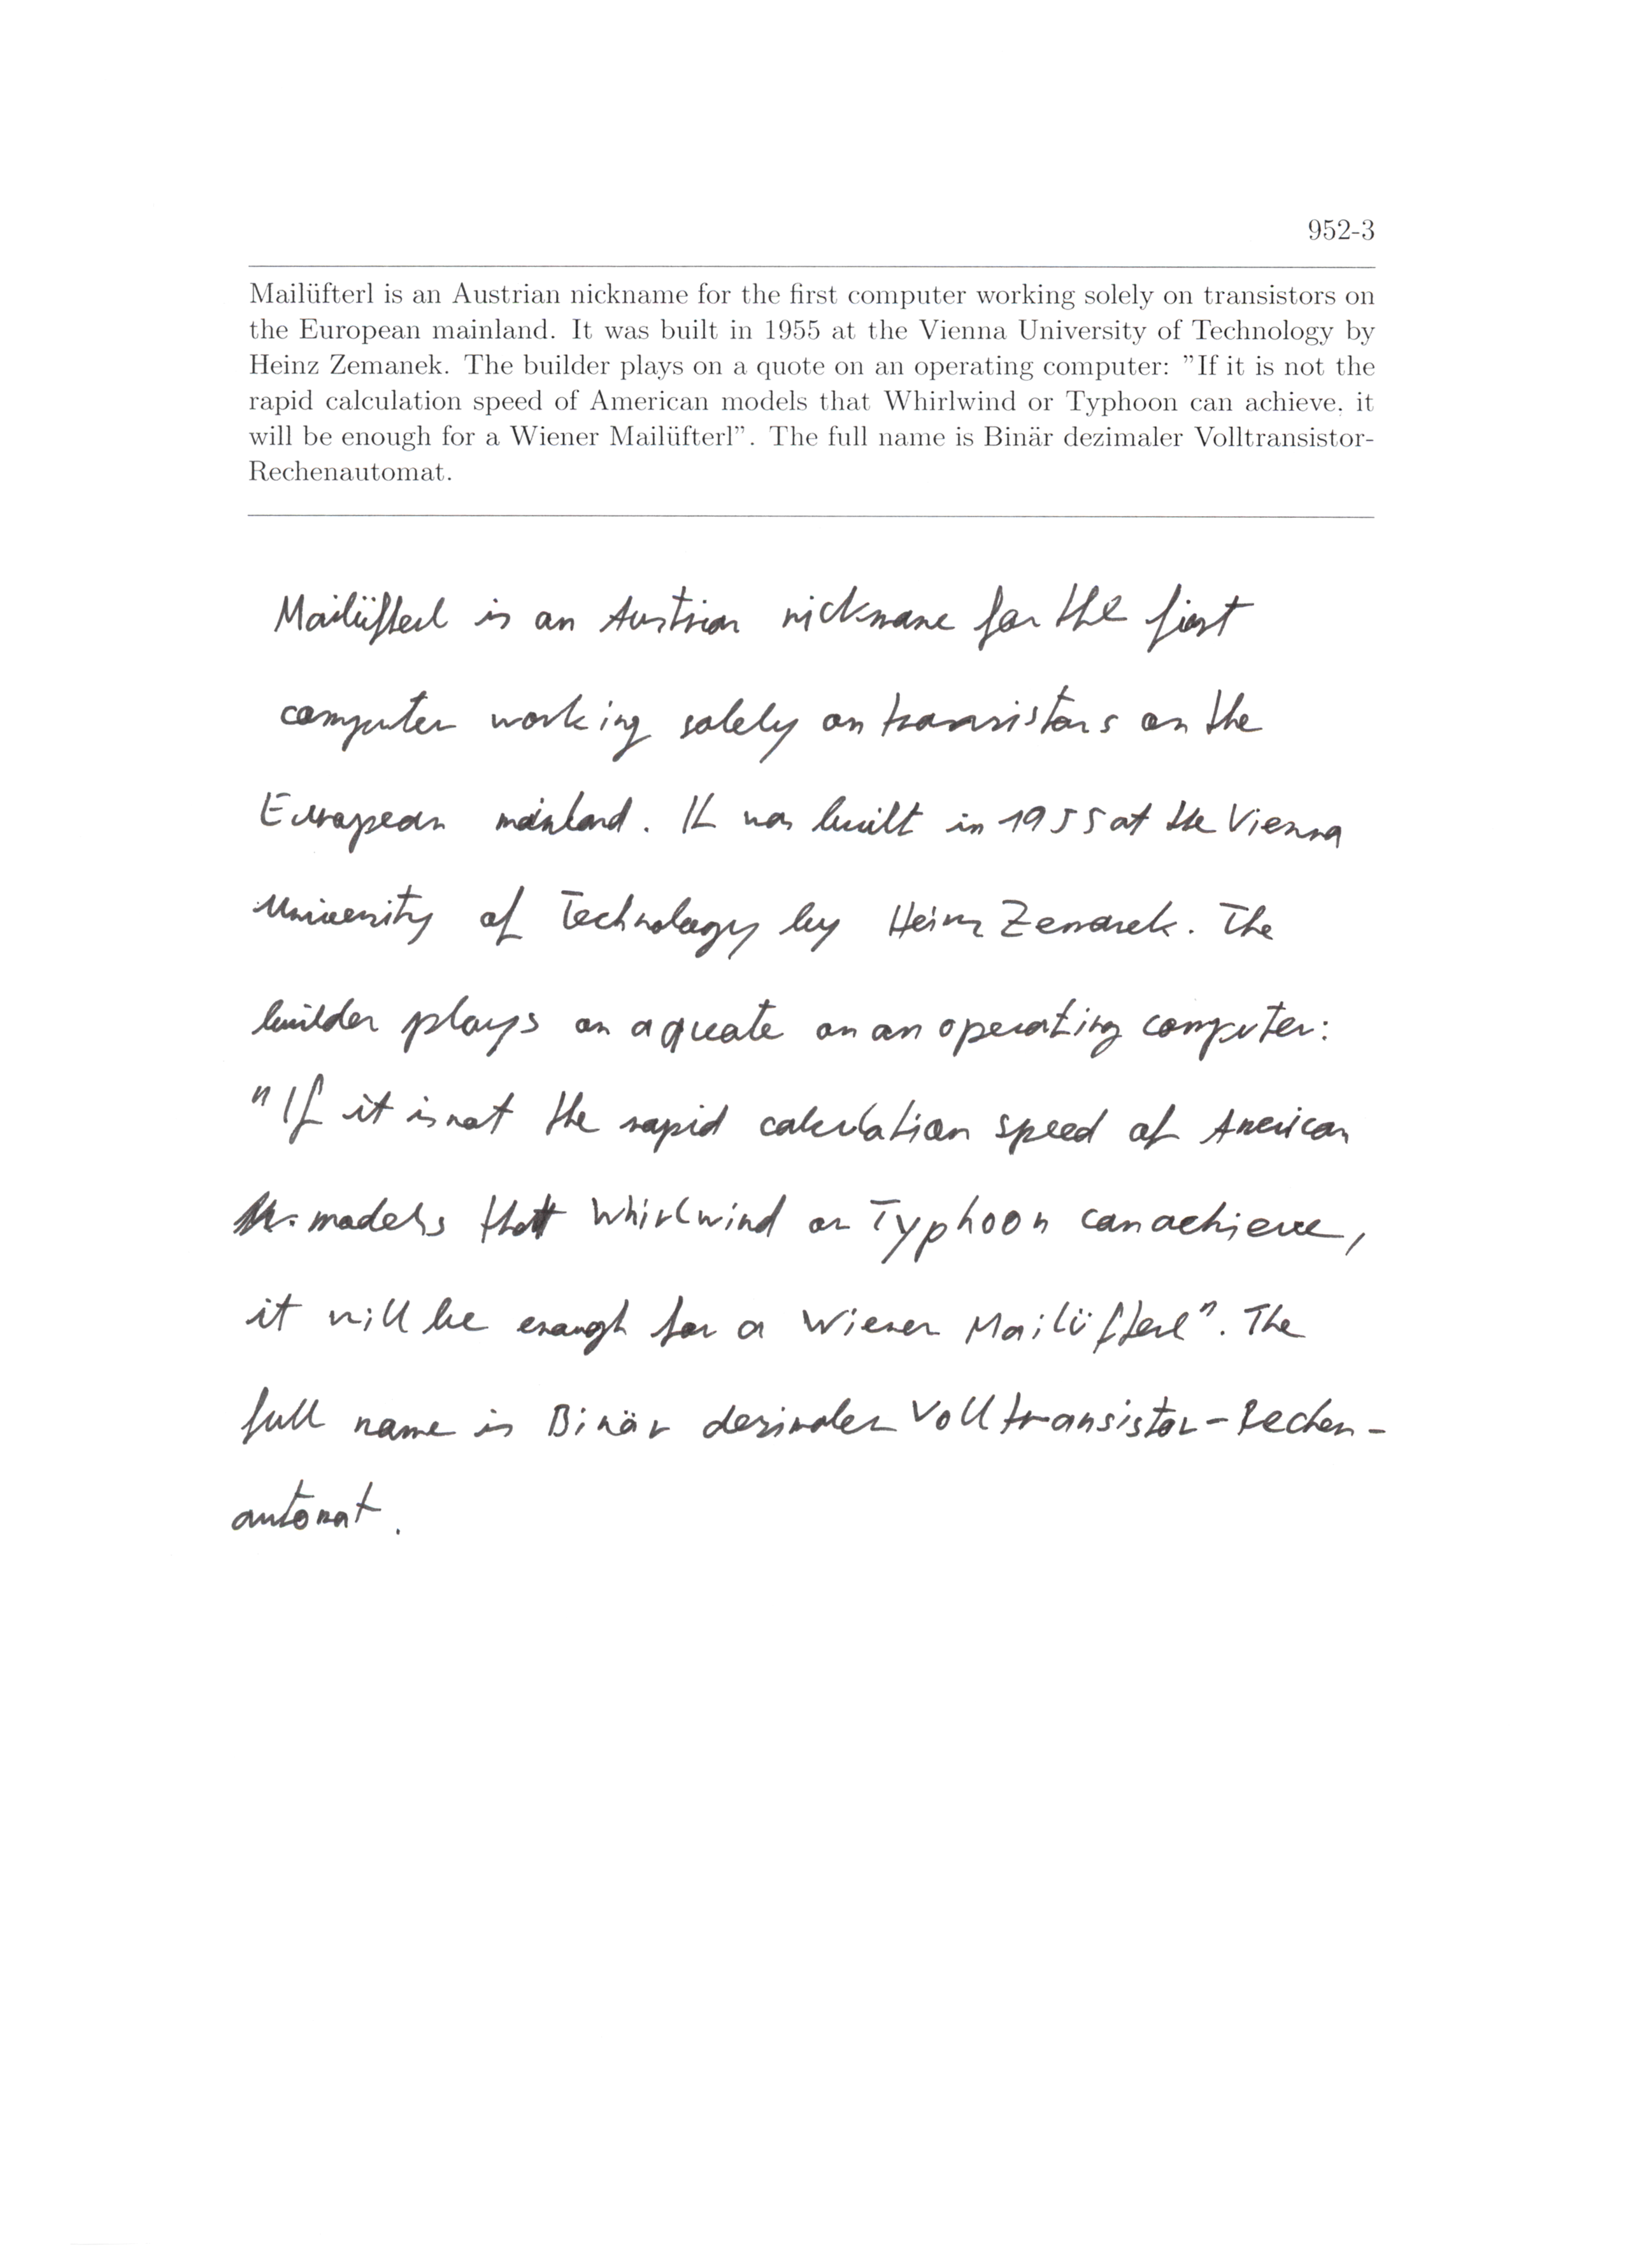 952-3
Mailüfterl is an Austrian nickname for the first computer working solely on transistors on
the European mainland. It was built in 1955 at the Vienna University of Technology by
Heinz Zemanek. The builder plays on a quote on an operating computer: ”If it is not the
rapid calculation speed of American models that Whirlwind or Typhoon can achieve, it
will be enough for a Wiener Mailüfterl”. The full name is Binär dezimaler Volltransistor-
Rechenautomat.
Mailüfterl is an Austrian nickname for the first
computer working solely on transistors on the
European mainland. It was built in 1955 at the Vienna
University of Technology by Heinz Zemanek. The
builder plays on a quote on an operating computer:
"If it is not the rapid calculation speed of American
models that Whirlwind or Typhoon can achieve,
it will be enough for a Wiener Mailüfterl". The
full name is Binär dezimaler Volltransistor-Rechen-
automat.